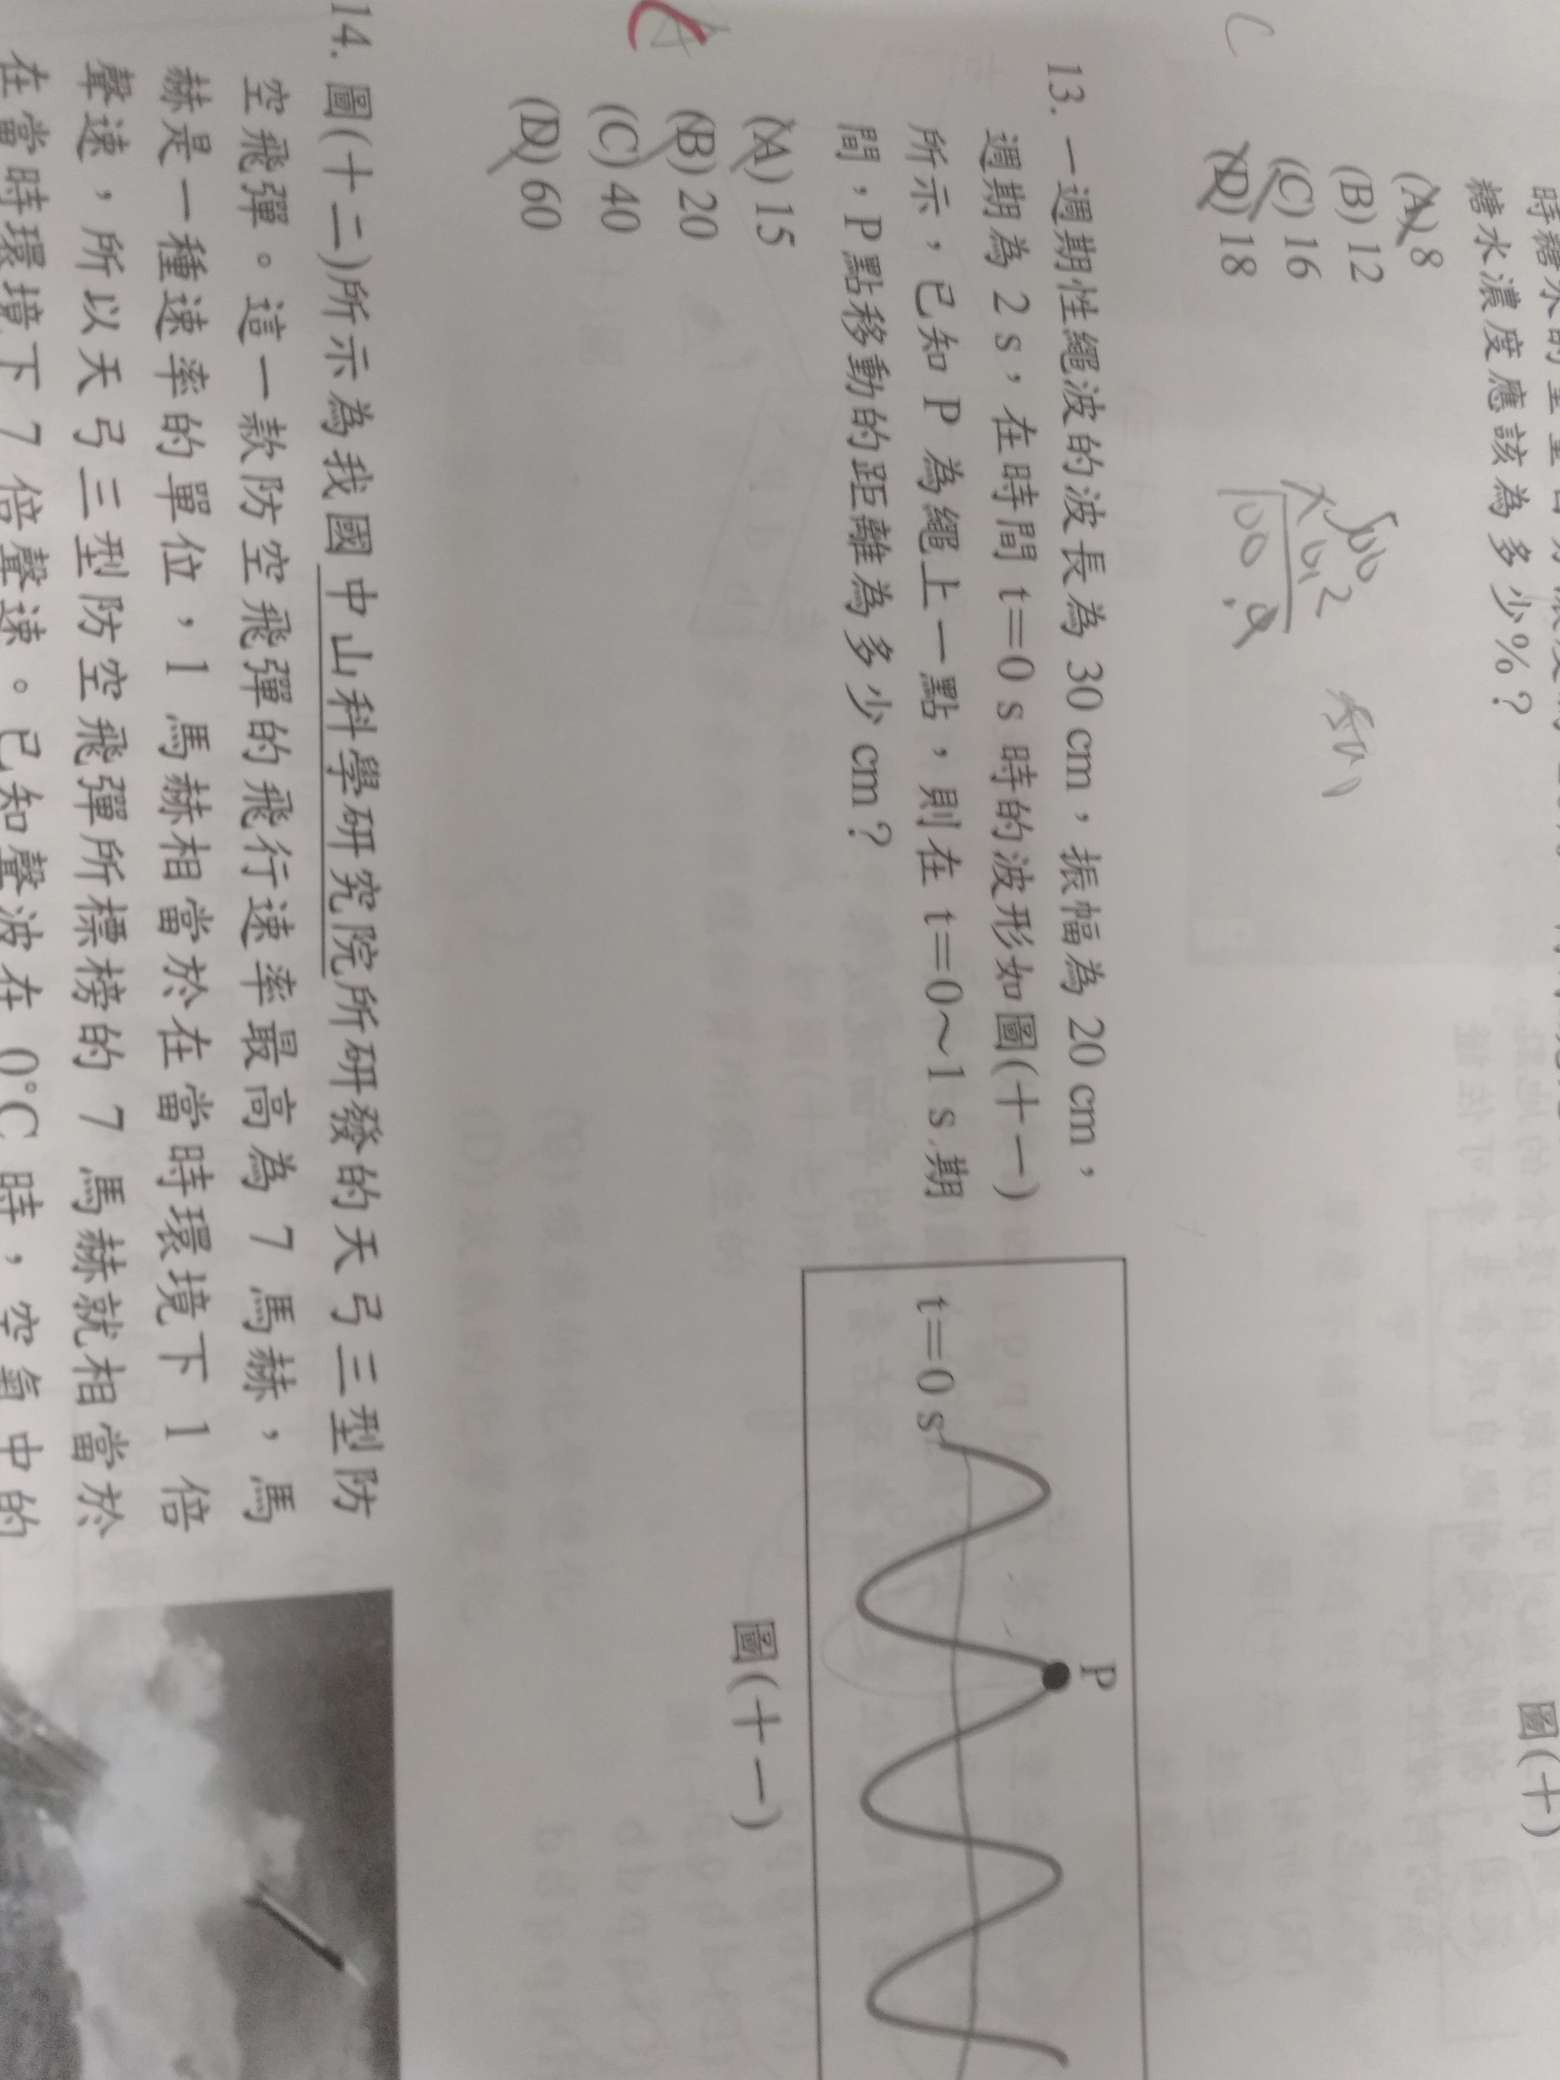 糖水濃度應該為多少%？
(A) 8
(B) 12
(C) 16
(D) 18
圖(十)
13. 一週期性繩波的波長為 30 cm，振幅為 20 cm，
週期為 2 s，在時間 t＝0 s 時的波形如圖(十一)
所示，已知 P 為繩上一點，則在 t＝0～1 s 期
間，P 點移動的距離為多少 cm？
(A) 15
(B) 20
(C) 40
(D) 60
P
t＝0 s
圖(十一)
14. 圖(十二)所示為我國中山科學研究院所研發的天弓三型防
空飛彈。這一款防空飛彈的飛行速率最高為 7 馬赫，馬
赫是一種速率的單位，1 馬赫相當於在當時環境下 1 倍
聲速，所以天弓三型防空飛彈所標榜的 7 馬赫就相當於
在當時環境下 7 倍聲速。已知聲波在 0℃ 時，空氣中的